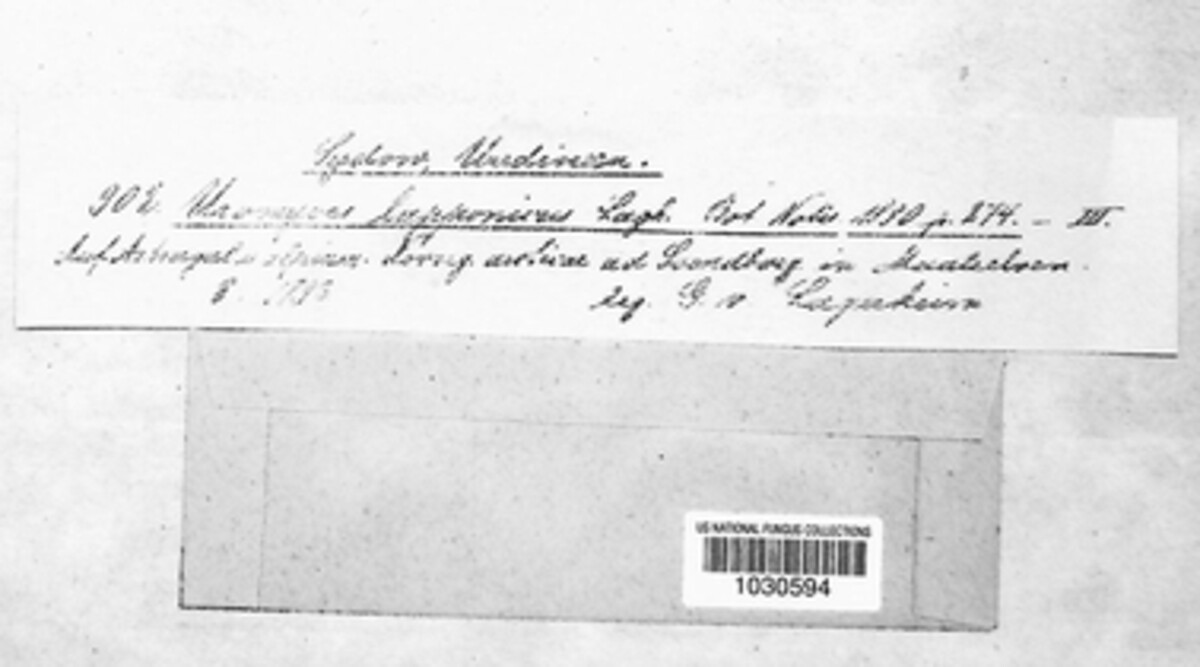 Sydow, Uredineen.
902. Uromyces lapponicus Lagh. Bot Notis 1890 p. 274. - III.
Auf Astragalus alpinus. Norveg. arcticae ad Lundborg in Maalselven.
8. leg. G. v Lagerheim
US NATIONAL FUNGUS COLLECTIONS
1030594